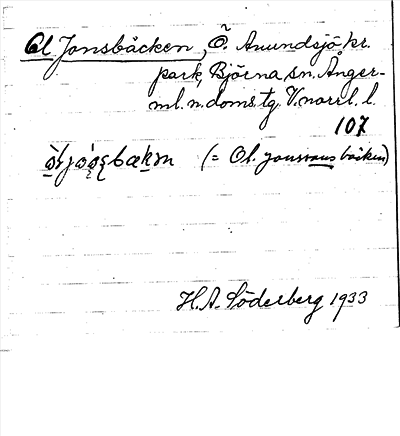 Ol Jonsbäcken, Ö. Anundsjö kr.
park, Björna sn. Ånger-
ml. n. doms. tg. V.norrl. l.
107
(= Ol. jonsvans bäcken)
H.A. Söderberg 1933